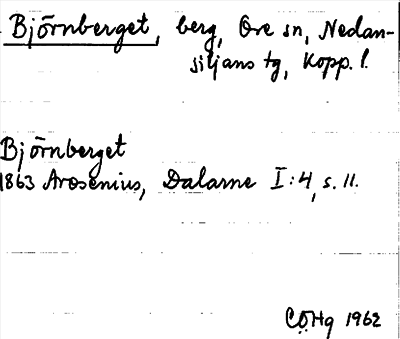 Björnberget, berg, Ore sn, Nedan-
siljans tg, Kopp. l.
Björnberget
1863 Arosenius, Dalarne I:4, s. 11.
CÖHg 1962